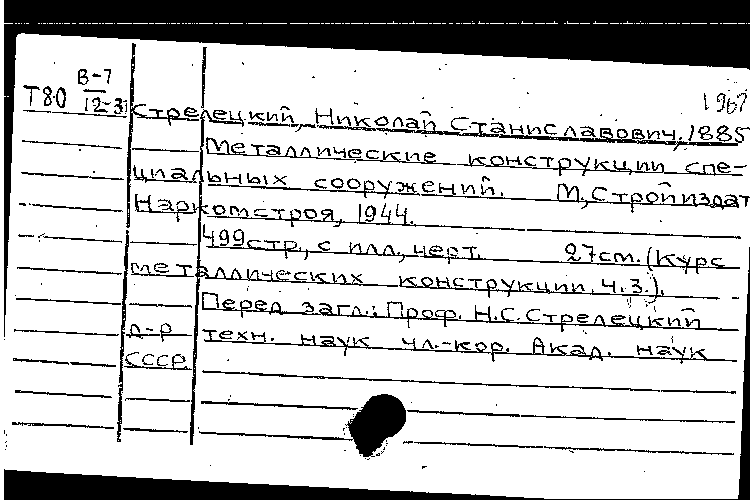 В-7
Т80 12-31 1967
Стрелецкий, Николай Станиславович, 1885
Металлические конструкции спе-
циальных сооружений. М., Стройиздат
Наркомстроя, 1944.
499стр., с илл., черт. 27см. (Курс
металлических конструкции. Ч.3.).
Перед загл.: Проф. Н.С.Стрелецкий
д-р техн. наук чл.-кор. Акад. наук
СССР